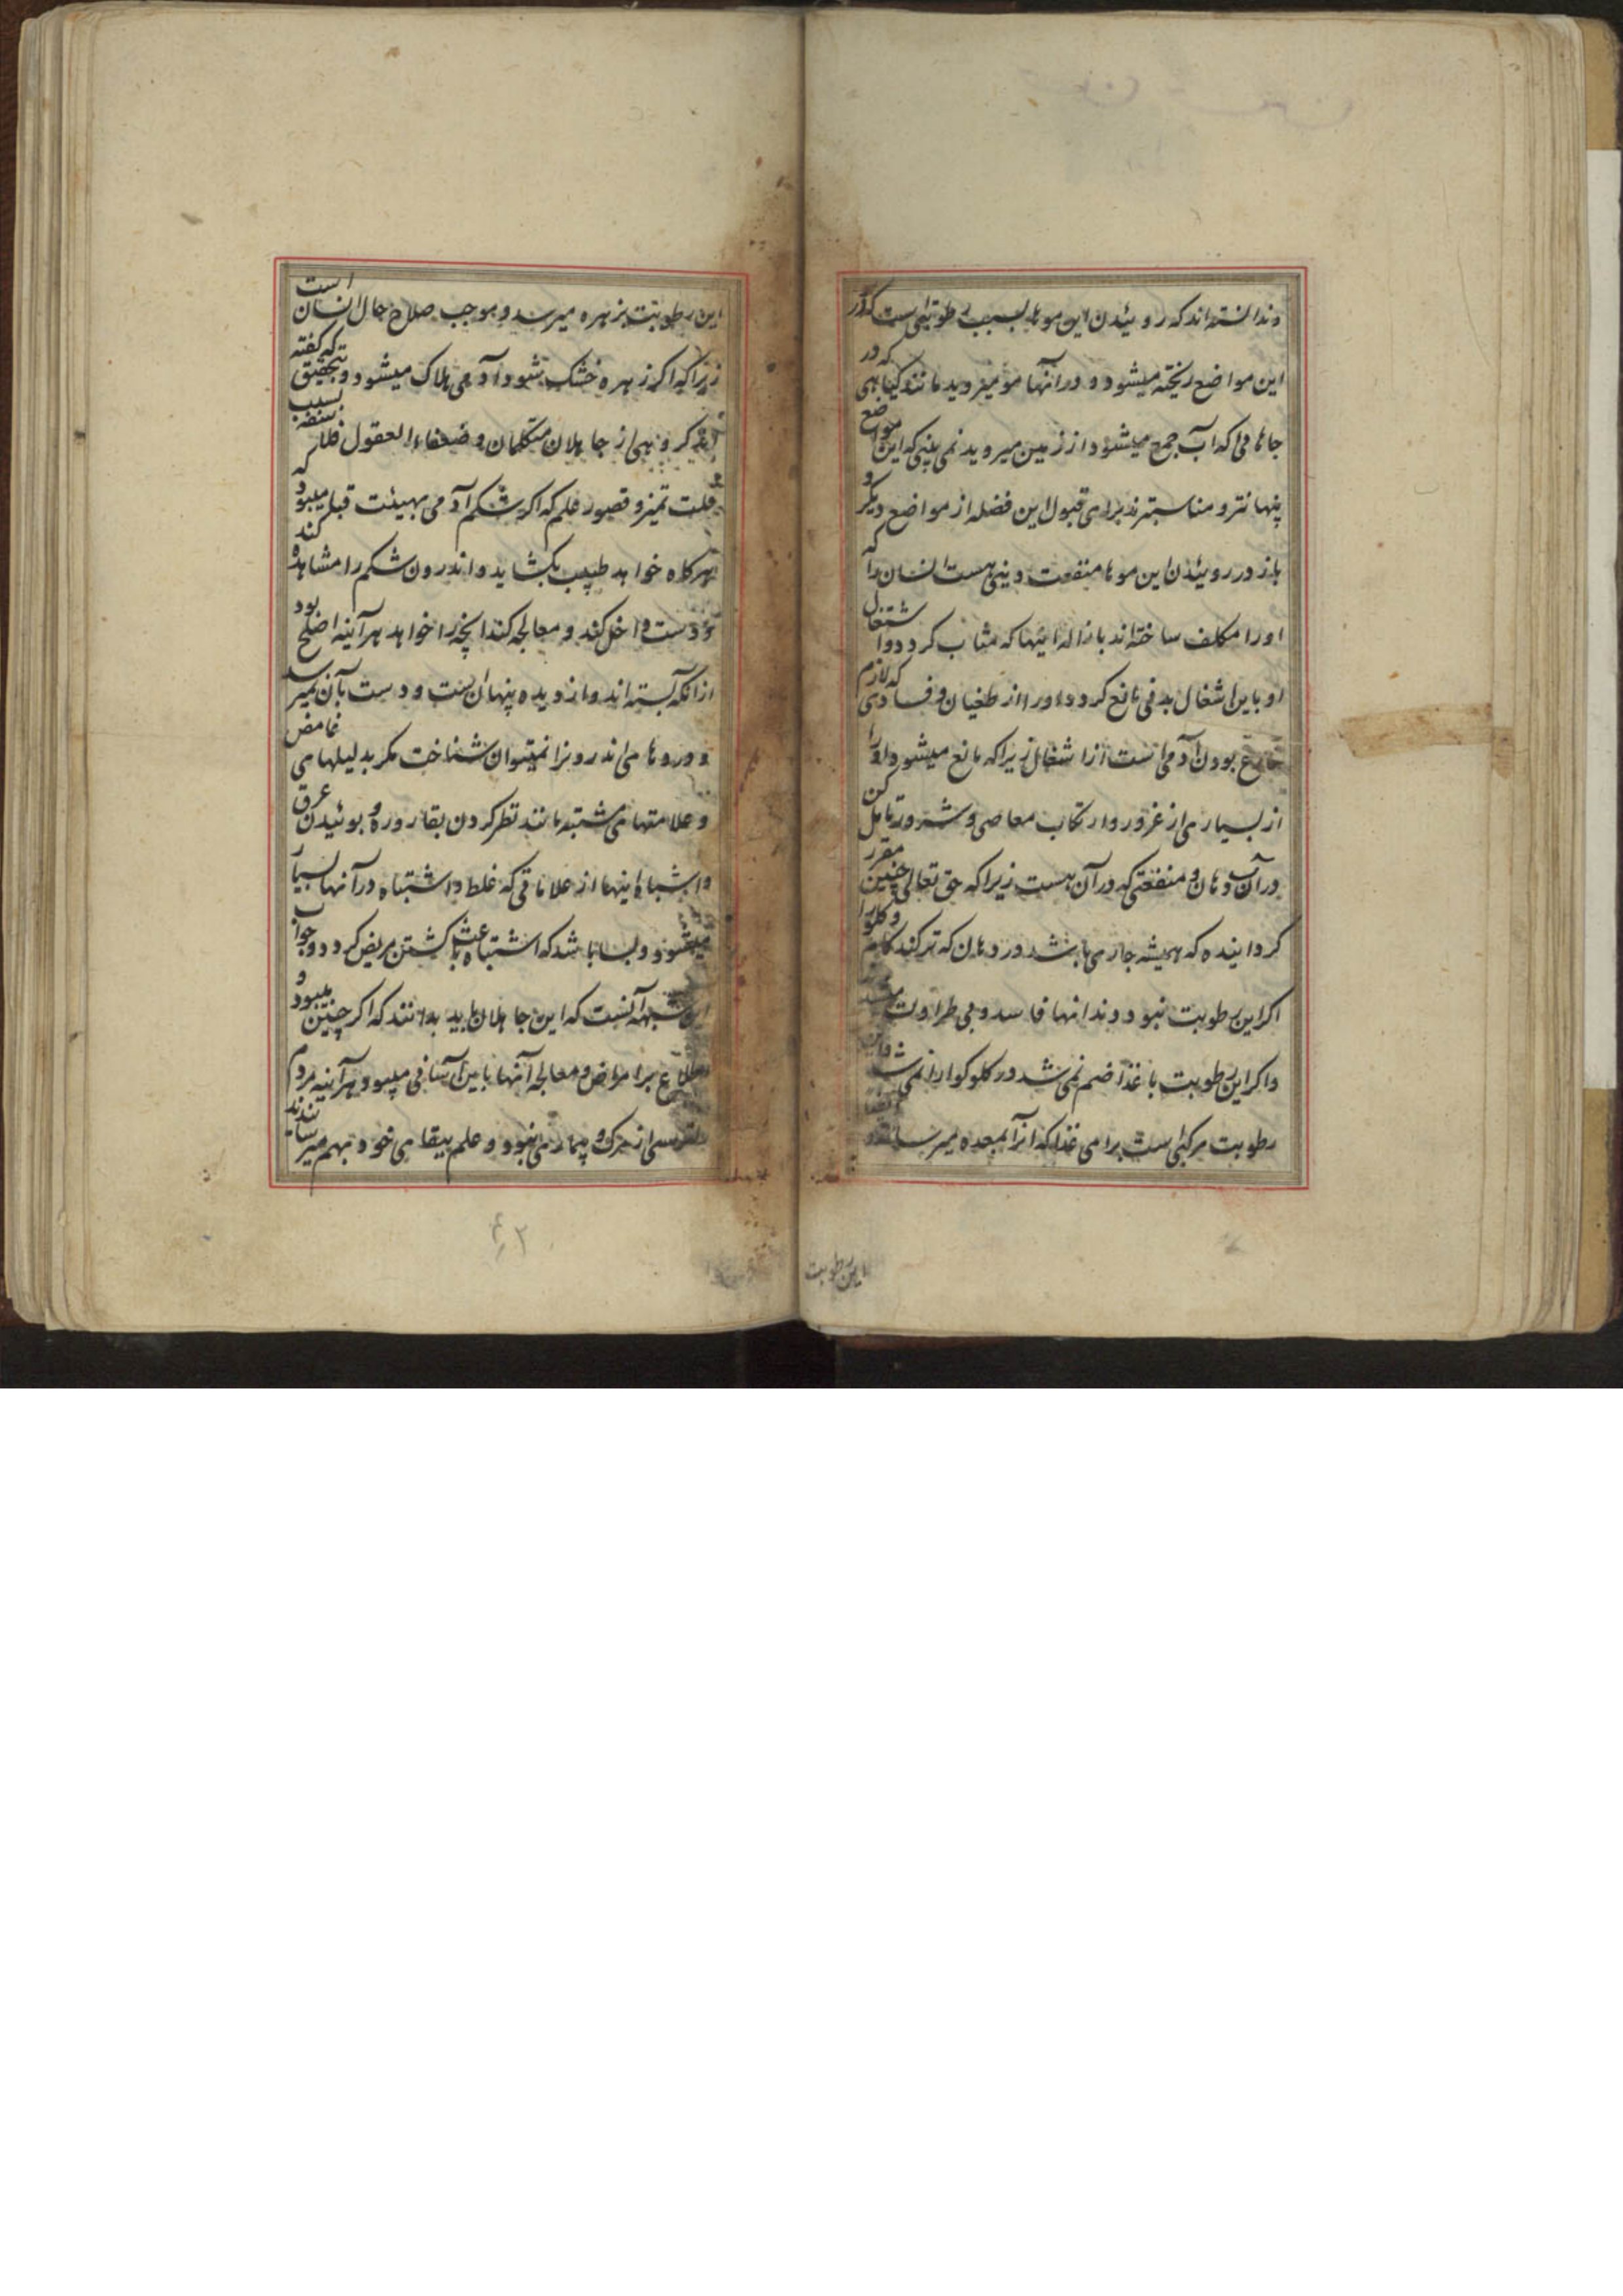 و ندانسته‌اند که روئیدن این موها بسبب رطوبتی است که در
این مواضع ریخته میشود و در آنها مو میروید مانند گیاهی که در
جاهائی که آب جمع میشود از زمین میروید نمی بینی که این مواضع
پنهان‌تر و مناسبترند برای قبول این فضله از مواضع دیگر و
باز در روئیدن این موها منفعت دینی هست انسان را که
او را مکلف ساخته‌اند بازاله اینها که مثاب گردد و اشتغال
او باین اشغال بدنی مانع گردد او را از طغیان و فسادی که لازم
فارغ بودن آدمی است از اشغال زیرا که مانع میشود او را
از بسیاری از غرور و ارتکاب معاصی و شرور تامل کن
در آب دهان و منفعتی که در آن هست زیرا که حق تعالی چنین مقرر
گردانیده که همیشه جاری باشد در دهان که تر کند کام و گلو را
اگر این رطوبت نبود دندانها فاسد و بی طراوت میشد
و اگر این رطوبت با غذا ضم نمی شد در گلو گوارا نمی شد
رطوبت مرکبی است برای غذا که آنرا بمعده میرساند
این رطوبت
این رطوبت بزهره میرسد و موجب صلاح حال انسان است
زیرا که اگر زهره خشک شود آدمی هلاک میشود و بتحقیق که گفته
اند گروهی از جاهلان متکلمان و ضعفاء العقول فلاسفه بسبب
قلت تمیز و قصور علم که اگر شکم آدمی بهیئت قبا میبود که
هر گاه خواهد طبیب بگشاید و اندرون شکم را مشاهده کند
و دست داخل کند و معالجه کند آنچه را خواهد هر آینه اصلح بود
از آنکه بسته‌اند و از دیده پنهان است و دست بآن نمیرسد
و دردهای اندرونرا نمیتوان شناخت مگر بدلیلهای غامض
و علامتهای مشتبه مانند نظر کردن بقاروره و بوئیدن عرق
و اشباه اینها از علاماتی که غلط و اشتباه در آنها بسیار
میشود و بسا باشد که اشتباه باعث کشتن مریض گردد و جواب
این شبهه آنست که این جاهلان باید بدانند که اگر چنین میبود و
اطلاع بر امراض و معالجه آنها باین آسانی میبود هر آینه مردم
ترسی از مرگ و بیماری نبود و علم ببقای خود بهم میرسانیدند
٤٢